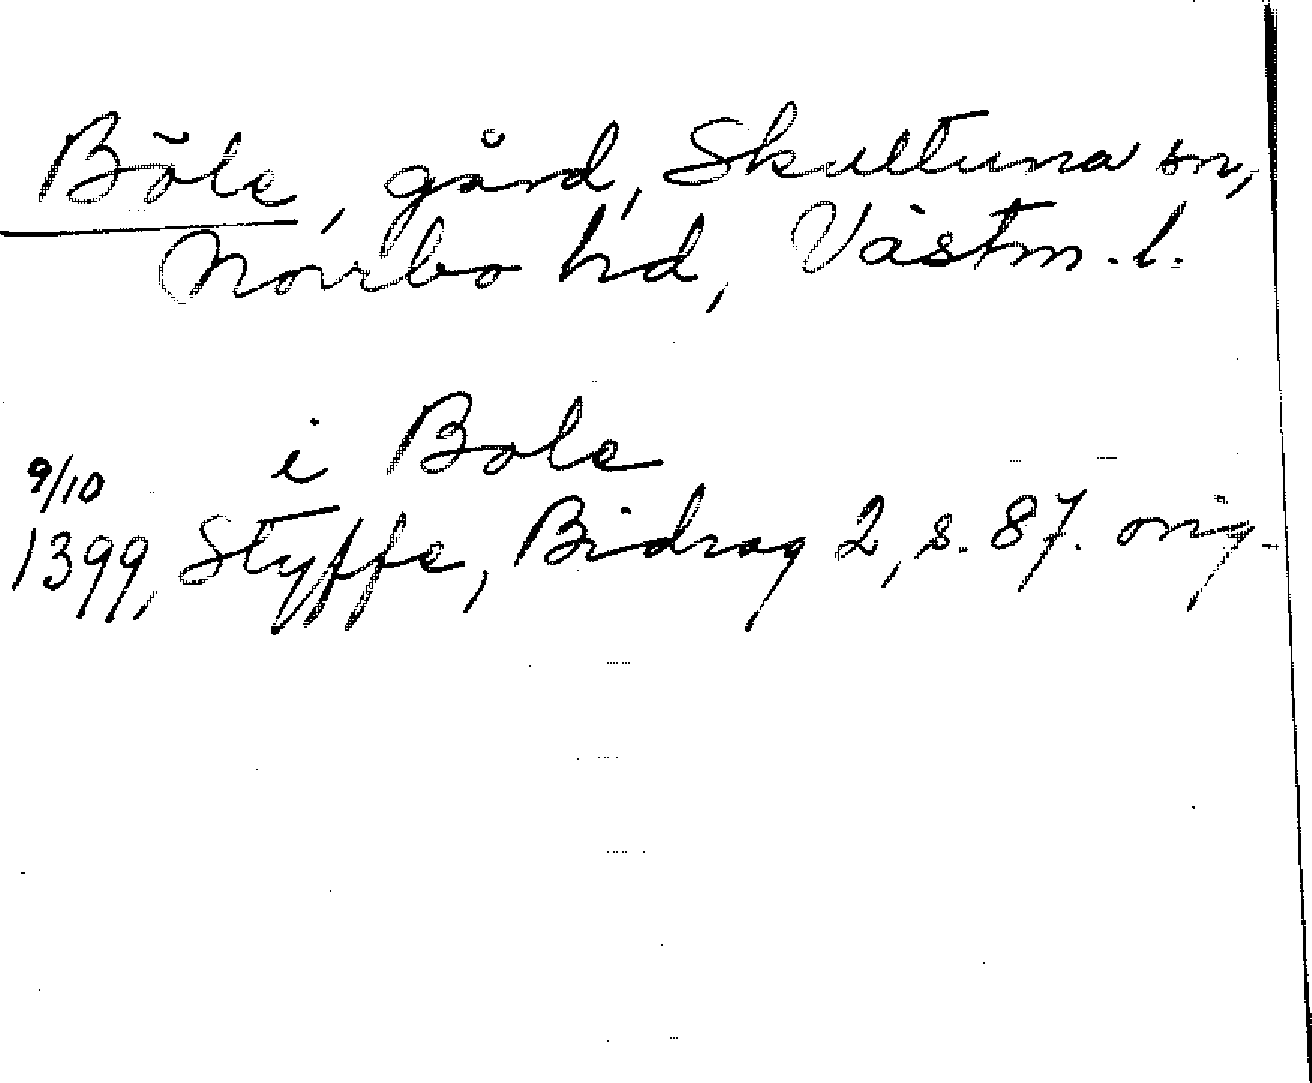 Böle, gård, Skultuna sn,
Norrbo hd, Västm. l.
i Bole
9/10
1399, Styffe, Bidrag 2, s. 87. orig.